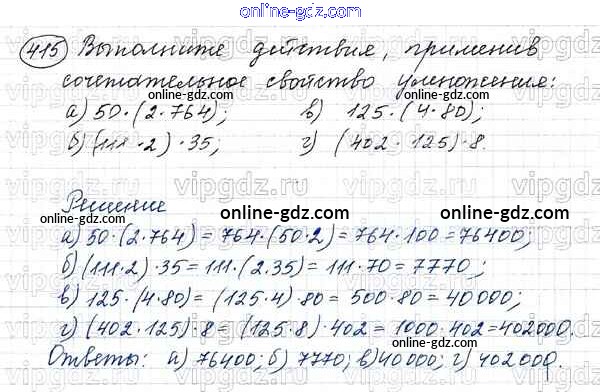 online-gdz.com
415 Выполните действия, применив
сочетательное свойство умножения:
а) 50·(2·764); в) 125·(4·80);
б) (111·2)·35; г) (402·125)·8.
vipgdz.ru
Решение
online-gdz.com online-gdz.com
а) 50·(2·764) = 764·(50·2) = 764·100 = 76400;
б) (111·2)·35 = 111·(2·35) = 111·70 = 7770;
в) 125·(4·80) = (125·4)·80 = 500·80 = 40000;
г) (402·125)·8 = (125·8)·402 = 1000·402 = 402000.
Ответы: а) 76400; б) 7770; в) 40000; г) 402000.
online-gdz.com online-gdz.com